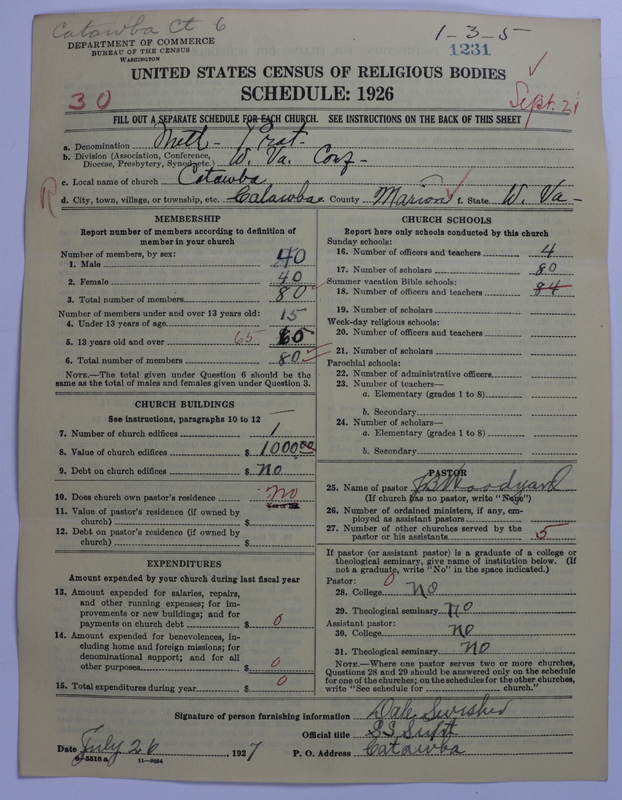 Catawba Ct 6
1-3-5
DEPARTMENT OF COMMERCE
BUREAU OF THE CENSUS
WASHINGTON
1231
UNITED STATES CENSUS OF RELIGIOUS BODIES
SCHEDULE: 1926
30
Sept. 21
FILL OUT A SEPARATE SCHEDULE FOR EACH CHURCH. SEE INSTRUCTIONS ON THE BACK OF THIS SHEET
a. Denomination Meth- Prot-
b. Division (Association, Conference, Diocese, Presbytery, Synod, etc.) W. Va. Conf-
c. Local name of church Catawba
R
d. City, town, village, or township, etc. Catawba e. County Marion f. State W. Va-
MEMBERSHIP
Report number of members according to definition of
member in your church
Number of members, by sex:
1. Male 40
2. Female 40
3. Total number of members 80
Number of members under and over 13 years old:
4. Under 13 years of age 15
5. 13 years old and over 65 65
6. Total number of members 80
NOTE.—The total given under Question 6 should be the
same as the total of males and females given under Question 3.
CHURCH BUILDINGS
See instructions, paragraphs 10 to 12
7. Number of church edifices 1
8. Value of church edifices $ 1000.00
9. Debt on church edifices $ no
10. Does church own pastor's residence no
Yes or No
11. Value of pastor's residence (if owned by
church) $
12. Debt on pastor's residence (if owned by
church) $
EXPENDITURES
Amount expended by your church during last fiscal year
13. Amount expended for salaries, repairs,
and other running expenses; for im-
provements or new buildings; and for
payments on church debt $ 0
14. Amount expended for benevolences, in-
cluding home and foreign missions; for
denominational support; and for all
other purposes $ 0
15. Total expenditures during year $ 0
CHURCH SCHOOLS
Report here only schools conducted by this church
Sunday schools:
16. Number of officers and teachers 4
17. Number of scholars 80
Summer vacation Bible schools:
18. Number of officers and teachers 84
19. Number of scholars
Week-day religious schools:
20. Number of officers and teachers
21. Number of scholars
Parochial schools:
22. Number of administrative officers
23. Number of teachers—
a. Elementary (grades 1 to 8)
b. Secondary
24. Number of scholars—
a. Elementary (grades 1 to 8)
b. Secondary
PASTOR
25. Name of pastor J B Woodyard
(If church has no pastor, write "None")
26. Number of ordained ministers, if any, em-
ployed as assistant pastors
27. Number of other churches served by the
pastor or his assistants 5
If pastor (or assistant pastor) is a graduate of a college or
theological seminary, give name of institution below. (If
not a graduate, write "No" in the space indicated.)
Pastor: 0
28. College no
29. Theological seminary no
Assistant pastor:
30. College no
31. Theological seminary no
NOTE.—Where one pastor serves two or more churches,
Questions 28 and 29 should be answered only on the schedule
for one of the churches; on the schedules for the other churches,
write "See schedule for church."
Signature of person furnishing information Dale Swisher
Official title S.S. Supt
Date July 26, 1927 P. O. Address Catawba
6-5518 a 11-9054